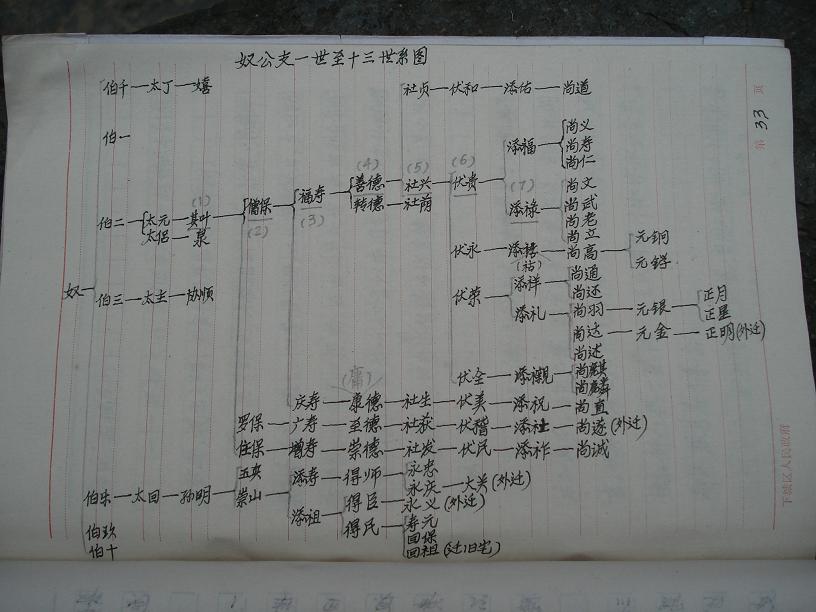 奴公支一世至十三世系图
第 33 页
伯千 太丁 嬉 社贞 伏和 添佑 尚道
伯一 添福 尚义
尚寿
尚仁
(1) (2) (3) (4) (5) (6) (7)
伯二 太元 其叶 儒保 福寿 善德 社兴 伏贵 添禄 尚文
太侣 泉 转德 社荫 尚武
尚老
尚立
伏永 添禧 尚高 元铜
(祜) 元锣
奴 伯三 太主 协顺 伏荣 添祥 尚通
尚还
添礼 尚羽 元银 正月
正星
尚达 元金 正明(外迁)
尚述
伏全 添衬 尚麒
尚麟
(庸)
庆寿 康德 社生 伏美 添祝 尚直
罗保 广寿 至德 社获 伏稽 添社 尚遂(外迁)
住保 增寿 崇德 社发 伏民 添祚 尚诚
伯乐 太回 孙明 五央 添寿 得师 永忠
崇山 永庆 大关(外迁)
添祖 得臣 永义(外迁)
伯玖 得民 寿元
回保
伯十 回祖(迁旧宅)
下城区人民政府